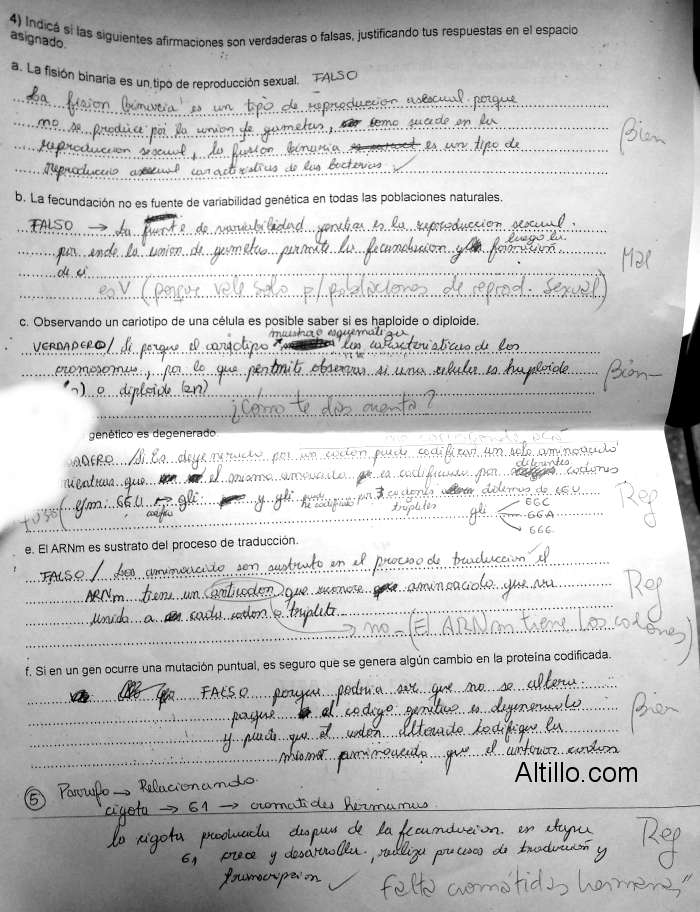 4) Indicá si las siguientes afirmaciones son verdaderas o falsas, justificando tus respuestas en el espacio
asignado.
a. La fisión binaria es un tipo de reproducción sexual. FALSO
La fision binaria es un tipo de reproduccion asexual porque
no se produce por la union de gametas, como sucede en la
reproduccion sexual, la fusion binaria es un tipo de
reproduccio asexual caracteristica de las bacterias ✓
Bien
b. La fecundación no es fuente de variabilidad genética en todas las poblaciones naturales.
FALSO → La fuente de variabilidad genetica es la reproduccion sexual.
por ende la union de gametas permite la fecundacion y luego la formacion
de ci
Mal
es V (porque vale solo p/ poblaciones de reprod. sexual)
c. Observando un cariotipo de una célula es posible saber si es haploide o diploide.
VERDADERO/ porque el cariotipo muestra esquematiza las caracteristicas de los
cromosomas, por lo que permite observar si una celula es haploide
(n) o diploide (2n)
Bien-
¿Cómo te das cuenta?
genético es degenerado
DERO / Si es degenerado por un codon puede codificar un solo aminoacido
mientras que el mismo aminoacido es codificado por diferentes codones
Ejm: GGU → gli y gli puede ser codificado por 3 codones tripletes distintos de GGU
codifica
gli GGC
GGA
GGG
Reg
e. El ARNm es sustrato del proceso de traducción.
FALSO / Los aminoacido son sustrato en el proceso de traduccion el
ARNm tiene un anticodon que reconoce aminoacido que va
unido a cada codon o triplete
Reg
→ no - (El ARNm tiene los codones)
f. Si en un gen ocurre una mutación puntual, es seguro que se genera algún cambio en la proteína codificada.
FALSO porque podria ser que no se altere
porque el codigo genetico es degenerado
y puede que el codon alterado codifique la
misma aminoacido que el anterior codon
Bien
Altillo.com
5 Parrafo → Relacionando.
cigota → G1 → cromatides hermanas.
la cigota producida despues de la fecundacion en etapa
G1 crece y desarrolla, realiza procesos de traduccion y
transcripcion ✓
Reg
Falta cromátidas hermanas"